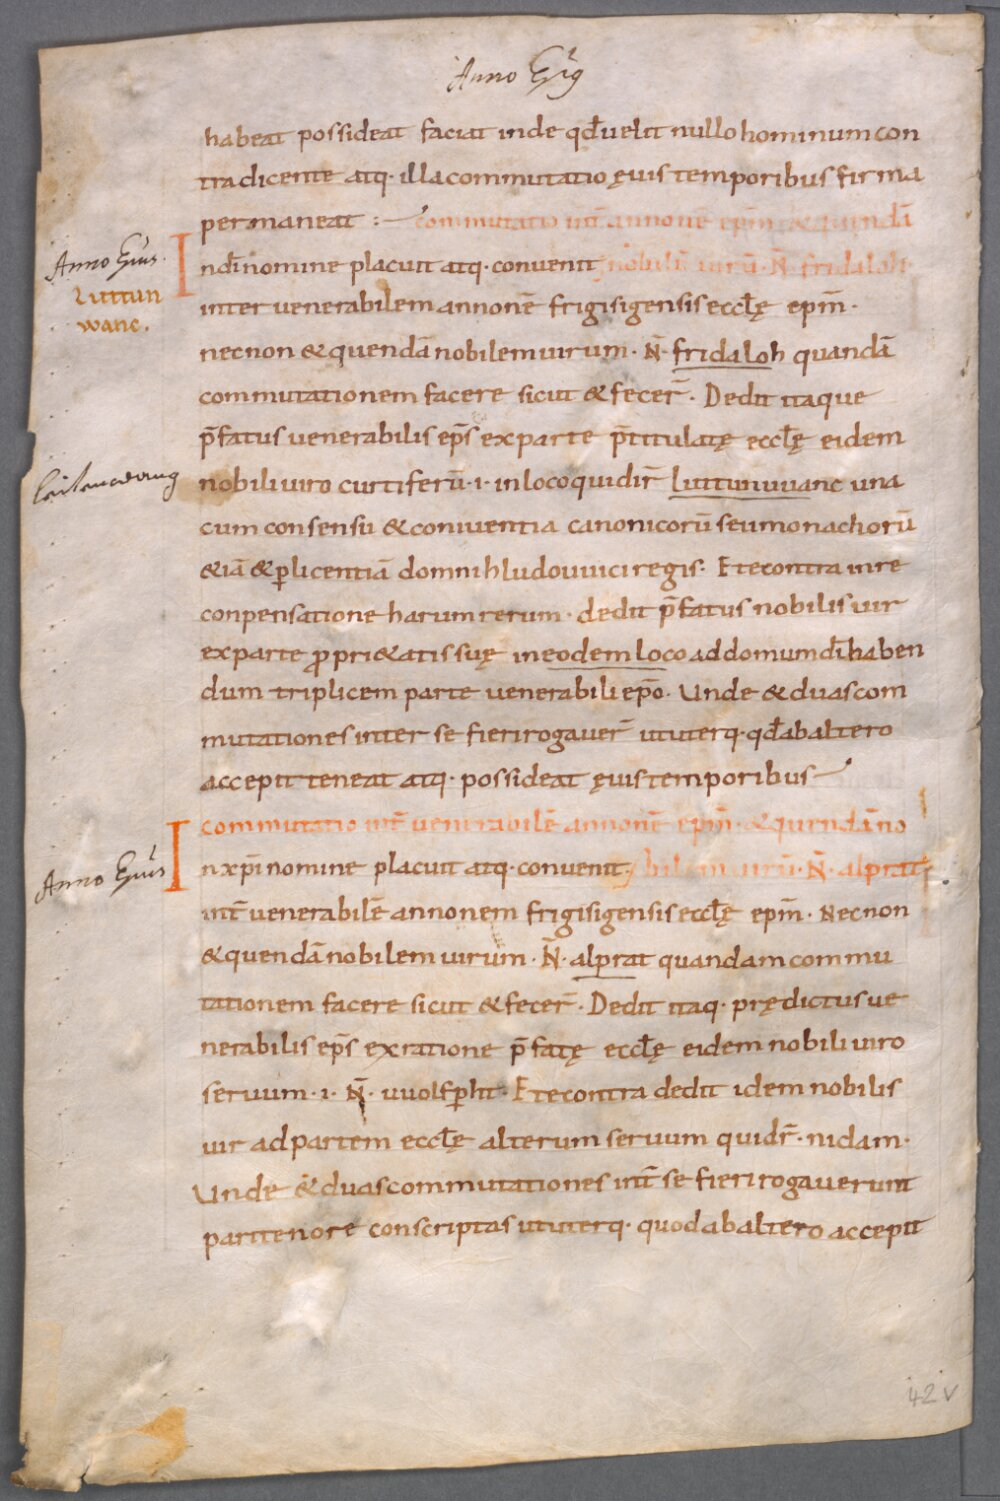 Anno Ep̄s
habeat possideat faciat inde qđ uelit nullo hominum con
tradicente atq· illa commutatio ęuis temporibus firma
permaneat :— Commutatio int̄ annonē epm̄ & quendā
Anno Eius.
Indī nomine placuit atq· conuenit nobilē uirū · N̄ · fridaloh
liuttun
wanc.
inter uenerabilem annonē frigisigensis eccłę epm̄ ·
necnon & quendā nobilem uirum · N̄ · fridaloh quandā
commutationem facere sicut & fecer̄ · Dedit itaque
p̄fatus uenerabilis ep̄s ex parte p̄titulatę eccłę eidem
nobili uiro curtiferū · i · in loco qui dir̄ liuttunuuanc una
cum consensu & coniuentia canonicorū seu monachorū
& iā & p̱ licentiā domni hludouuici regis · Et econtra in re
conpensatione harum rerum · dedit p̄fatus nobilis uir
ex parte ꝓpri&atis suę in eodem loco ad domum dī haben
dum triplicem parte uenerabili ep̄o · Unde & duas com
mutationes inter se fieri rogauer̄ ut uterq· qđ ab altero
accepit teneat atq· possideat ęuis temporibus —
commutatio int̄ uenerabilē annonē epm̄ · & quendā no
Anno Eius
In xp̄i nomine placuit atq· conuenit · bilem uirū · N̄ · alprat
int̄ uenerabilē annonem frigisigensis eccłę epm̄ · Necnon
& quendā nobilem uirum · N̄ · alprat quandam commu
tationem facere sicut & fecer̄ · Dedit itaq· prędictus ue
nerabilis ep̄s ex ratione p̄fatę eccłę eidem nobili uiro
seruum · i · N̄ · uuolfp̱ht · Et econtra dedit idem nobilis
uir ad partem eccłę alterum seruum qui dr̄ · nidam ·
Unde & duas commutationes int̄ se fieri rogauerunt
pari tenore conscriptas ut uterq· quod ab altero accepit
42v